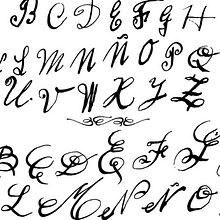 B C D E F G H
L M N Ñ O P Q
U V W X Y Z
B C D E F G
L M N Ñ O